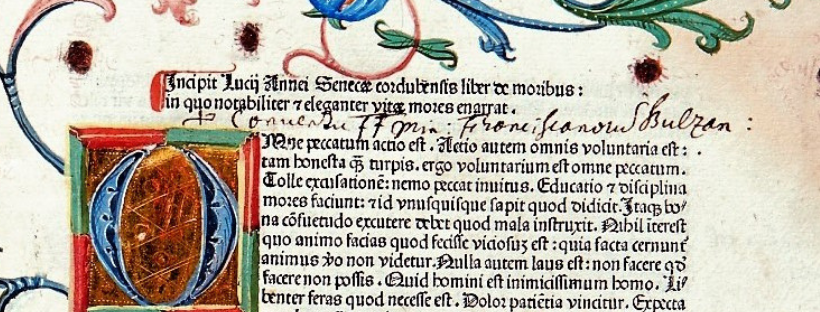 Incipit Lucij Annei Senecæ cordubensis liber de moribus:
in quo notabiliter ⁊ eleganter vitæ mores enarrat.
Conventu FF Min: Franciscanorum Bulzan:
OMne peccatum actio est. Actio autem omnis voluntaria est:
tam honesta q̃ꝫ turpis. ergo voluntarium est omne peccatum.
Tolle excusationē: nemo peccat inuitus. Educatio ⁊ disciplina
mores faciunt: ⁊ id vnusquisque sapit quod didicit. Itaqꝫ bo⸗
na cōsuetudo excutere debet quod mala instruxit. Nihil iterest
quo animo facias quod fecisse viciosuꝫ est: quia facta cernunt̃
animus ꝟo non videtur. Nulla autem laus est: non facere qď
facere non possis. Quid homini est inimicissimum homo. Li⸗
benter feras quod necesse est. Dolor patiētia vincitur. Expecta